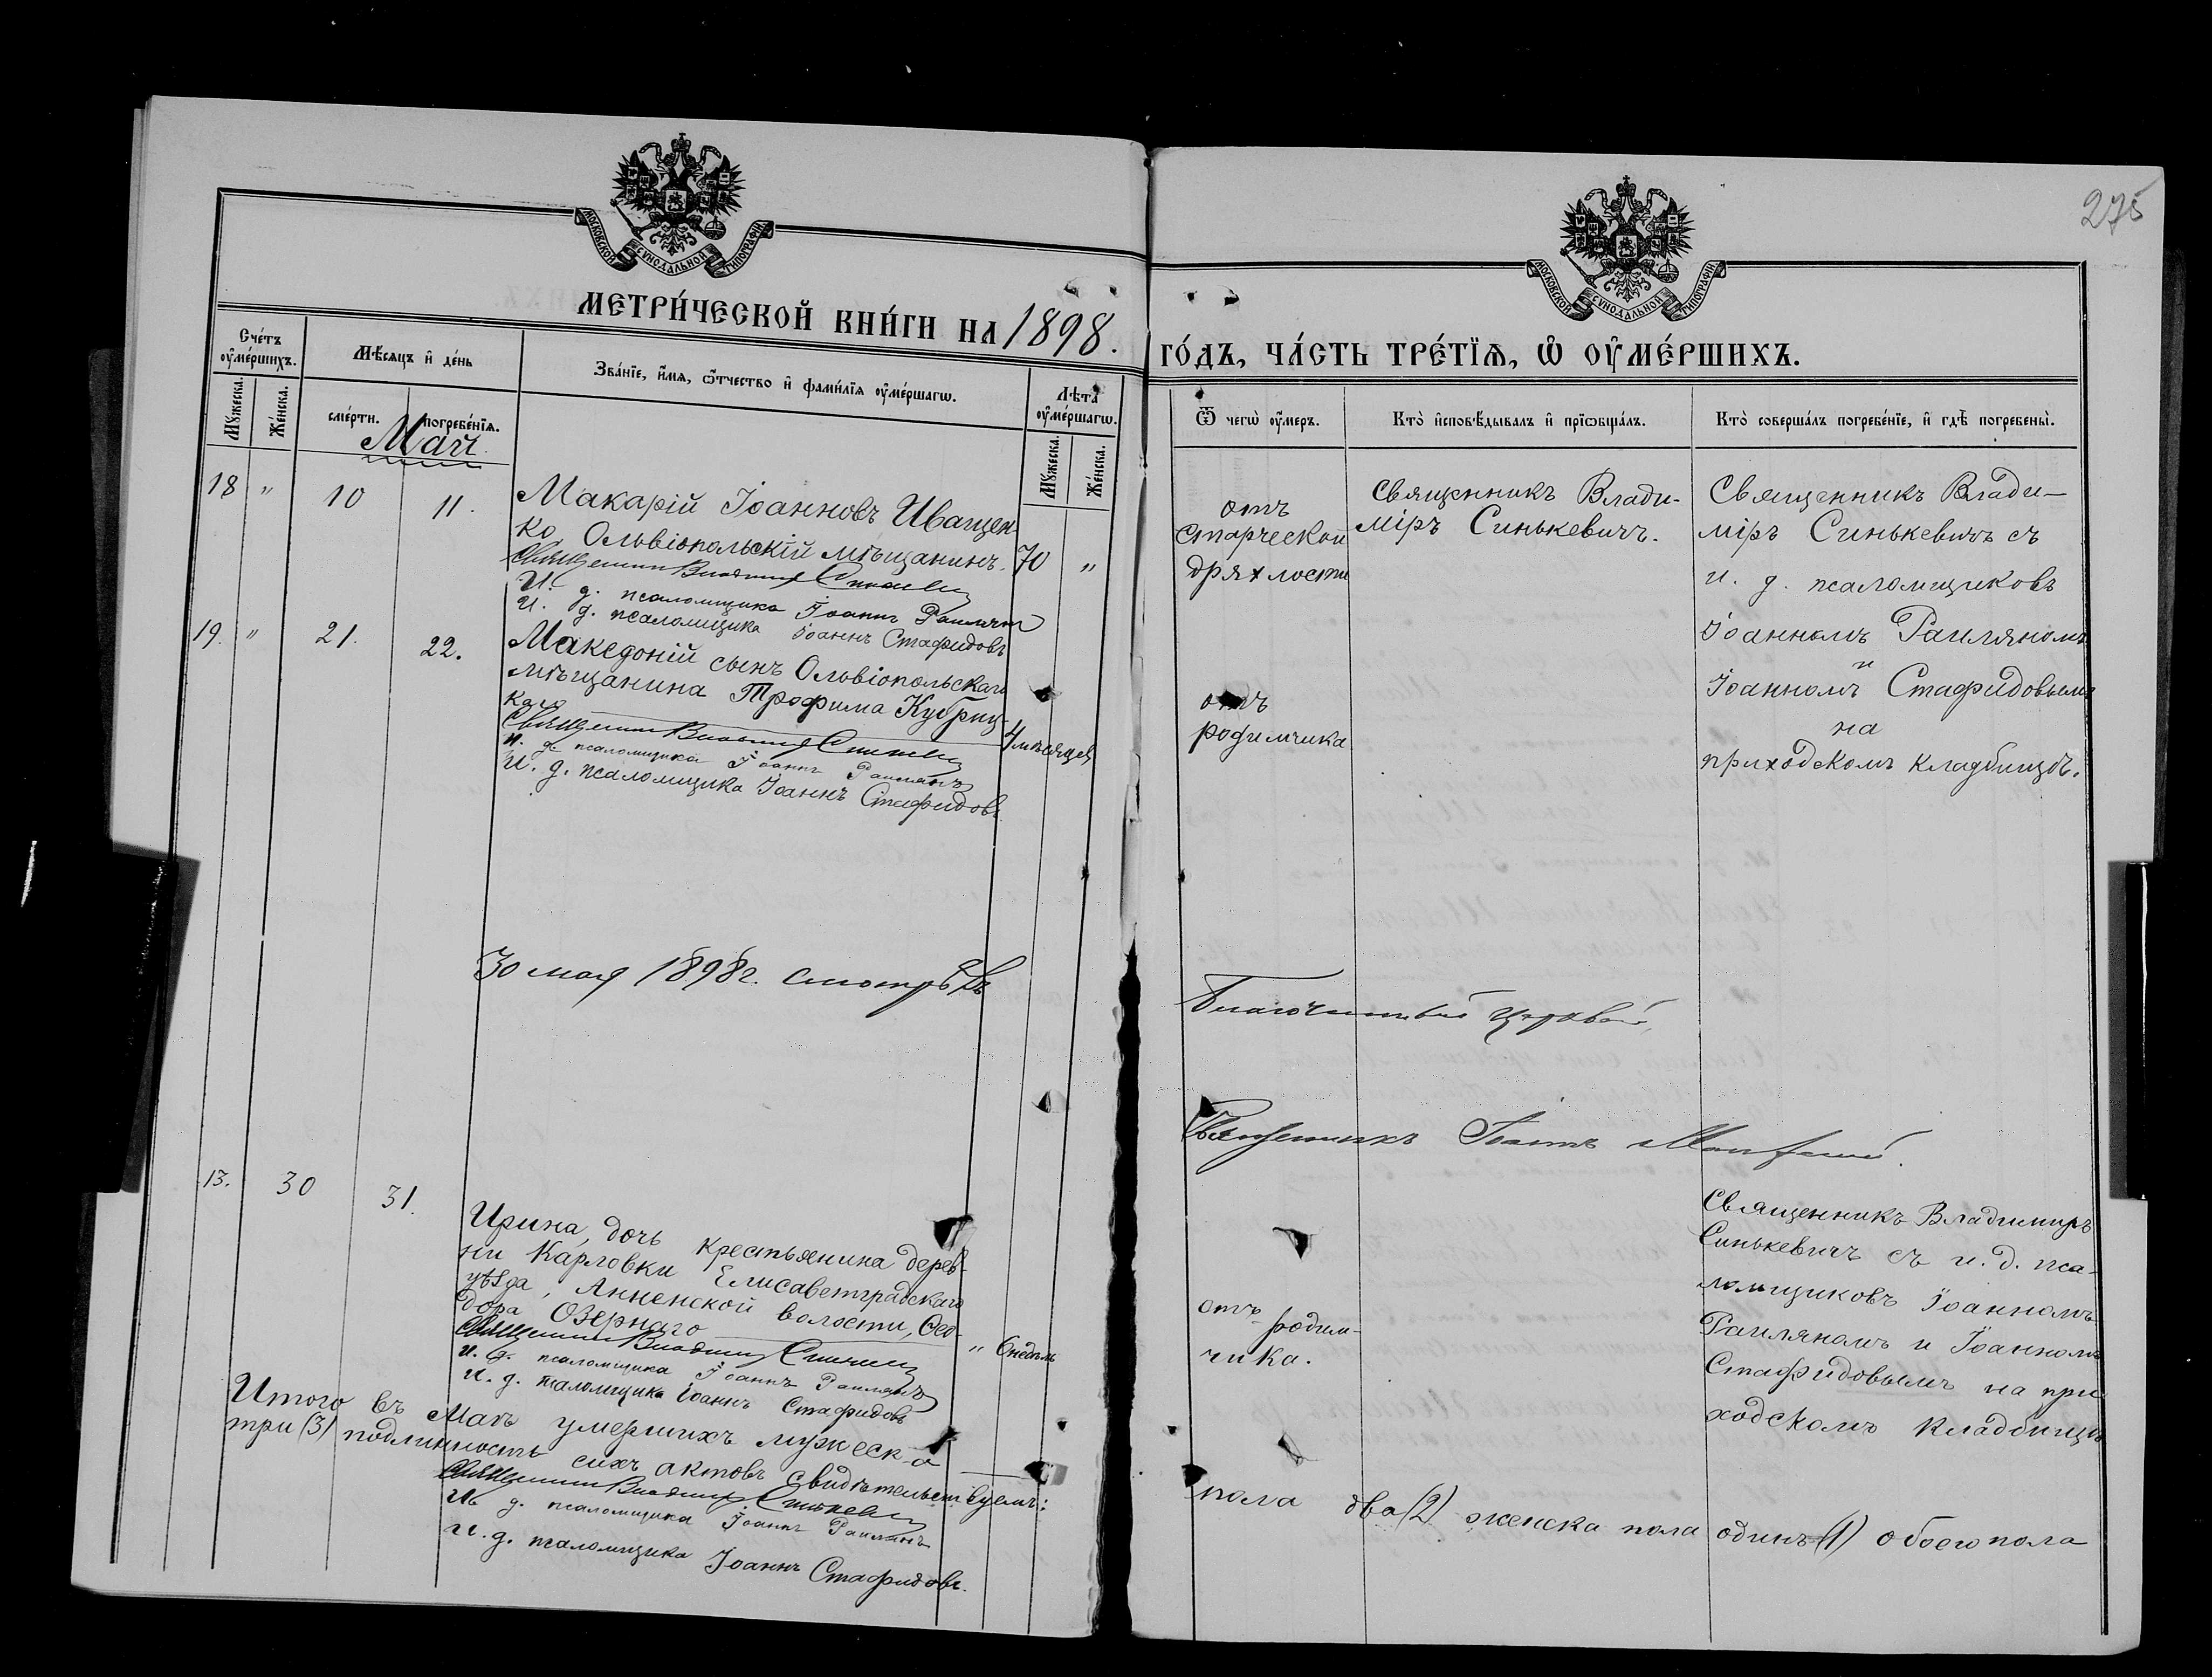 275
МОСКОВСКОЙ СУНОДАЛЬНОЙ ТИПОГРАФІИ
МОСКОВСКОЙ СУНОДАЛЬНОЙ ТИПОГРАФІИ
МЕТРИ́ЧЕСКОЙ КНИ́ГИ НА 1898.
ГО́ДЪ, ЧА́СТЬ ТРЕ́ТЇѦ, Ѡ ОУ҆МЕ́РШИХЪ.
Сче́тъ оу҆ме́ршихъ.
Мѣ́сяцъ и҆ де́нь
Зва́нїе, и҆́мя, ѻ҆́тчество и҆ фами́лїя оу҆ме́ршагѡ.
Лѣта̀ оу҆ме́ршагѡ.
Мꙋ́жеска.
Же́нска.
сме́рти.
погребе́нїя.
Мꙋ́жеска.
Же́нска.
Ѿ чегѡ̀ оу҆́меръ.
Кто̀ и҆сповѣ́дывалъ и҆ прїѡбща́лъ.
Кто̀ соверша́лъ погребе́нїе, и҆ гдѣ̀ погребены̀.
Май
18 " 10 11.
Макарій Іоанновъ Иващен-
ко, Ольвіопольскій мѣщанинъ.
70 "
Священникъ Владиміръ Синькевичъ
И. д. псаломщика Іоаннъ Раилянъ
И. д. псаломщика Іоаннъ Стафидовъ
отъ
старческой
дряхлости
Священникъ Влади-
міръ Синькевичъ.
Священникъ Влади-
міръ Синькевичъ съ
и. д. псаломщиковъ
Іоанномъ Раиляномъ
и
Іоанномъ Стафидовымъ
на
приходскомъ кладбищѣ.
19. " 21. 22.
Македоній сынъ Ольвіопольскаго
мѣщанина Трофима Кубриц-
каго
4 мѣсяцевъ
Священникъ Владиміръ Синькевичъ
И. д. псаломщика Іоаннъ Раилянъ
И. д. псаломщика Іоаннъ Стафидовъ
отъ
родимчика
30 мая 1898 г. смотрѣлъ
Благочинный церквей,
Священникъ Іоаннъ
13. 30 31.
Ирина, дочь крестьянина дерев-
ни Карловки Елисаветградскаго
уѣзда, Анненской волости, Ѳео-
дора Озернаго
" 6 недѣль
Священникъ Владиміръ Синькевичъ
И. д. псаломщика Іоаннъ Раилянъ
И. д. псаломщика Іоаннъ Стафидовъ
отъ родим-
чика.
Священникъ Владимиръ
Синькевичъ съ и. д. пса-
ломщиковъ Іоанномъ
Раиляномъ и Іоанномъ
Стафидовымъ на при
ходскомъ кладбищѣ
Итого въ Маѣ умершихъ мужеска
пола два (2) женска пола одинъ (1) обоего пола
три (3) подлинность сихъ актовъ свидѣтельствуемъ:
Священникъ Владиміръ Синькевичъ
И. д. псаломщика Іоаннъ Раилянъ
И. д. псаломщика Іоаннъ Стафидовъ.